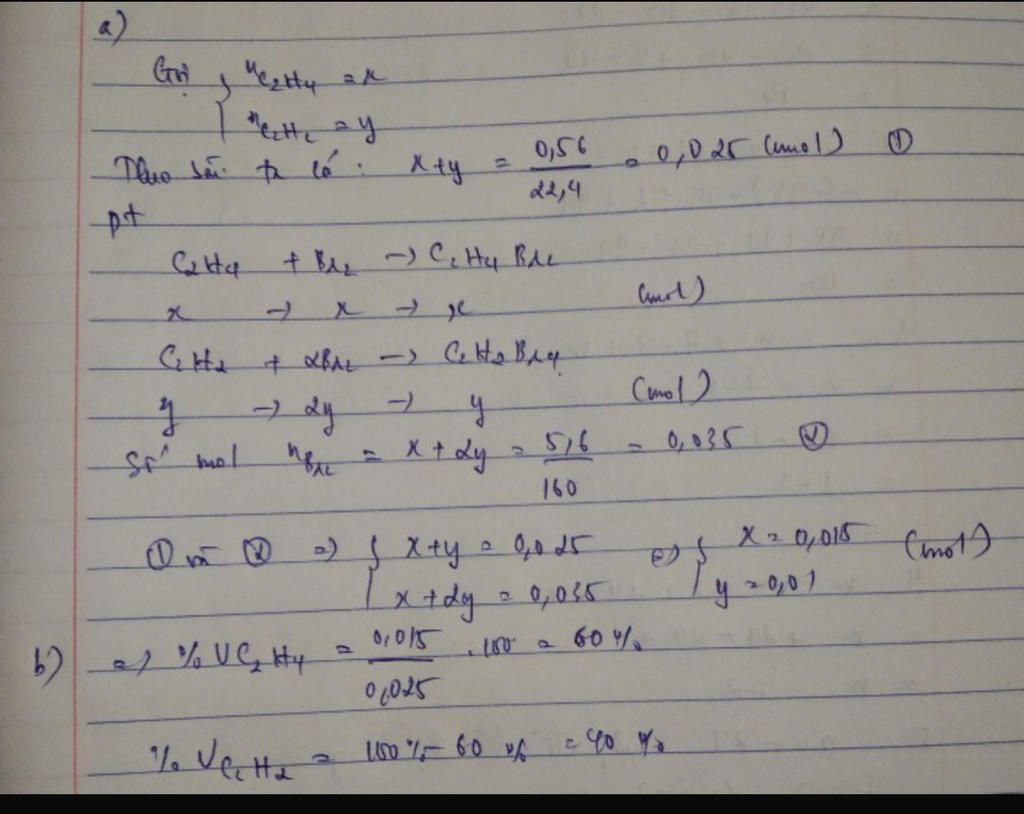 a)
Gọi { nC2H4 = x
nC2H2 = y
Theo bài ta có: x+y = 0,56 / 22,4 = 0,025 (mol) ①
pt
C2H4 + Br2 → C2H4Br2
x → x → x (mol)
C2H2 + 2Br2 → C2H2Br4
y → 2y → y (mol)
Số mol nBr2 = x + 2y = 5,6 / 160 = 0,035 ②
① và ② => { x+y = 0,025 <=> { x = 0,015 (mol)
x + 2y = 0,035 y = 0,01
b) => % VC2H4 = 0,015 / 0,025 . 100 = 60%
% VC2H2 = 100% - 60% = 40%